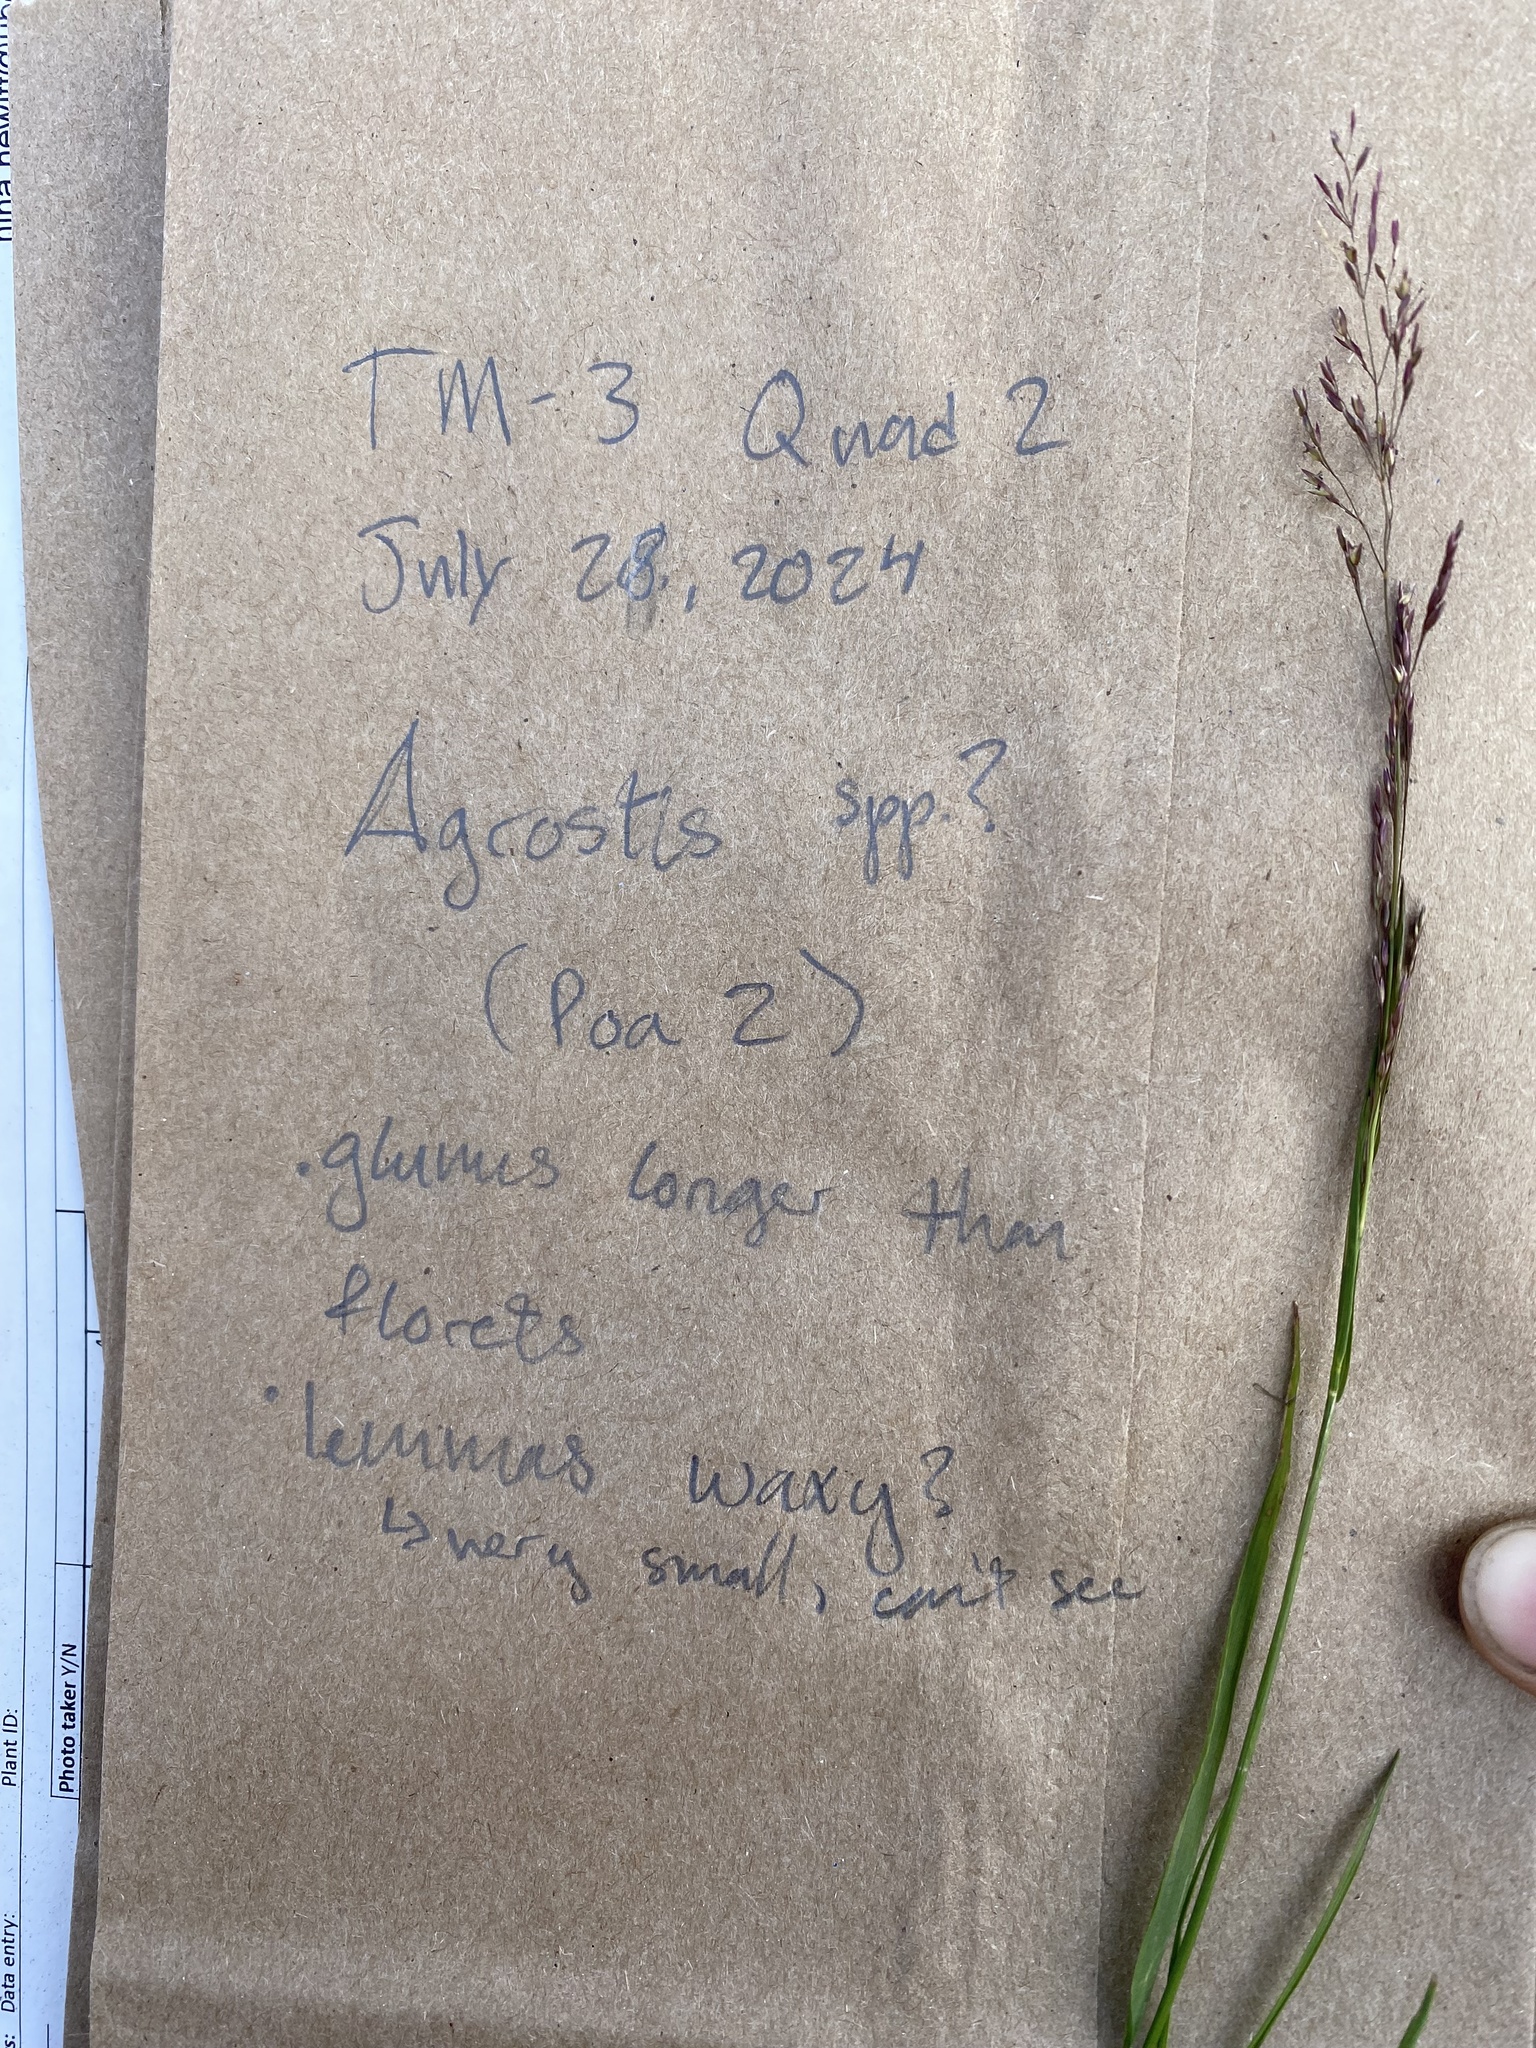 TM-3 Quad 2
July 28, 2024
Agrostis spp.?
(Poa 2)
• glumes longer than
florets
• lemmas waxy?
↳ very small, can't see
Plant ID:
Photo taker Y/N
Data entry: